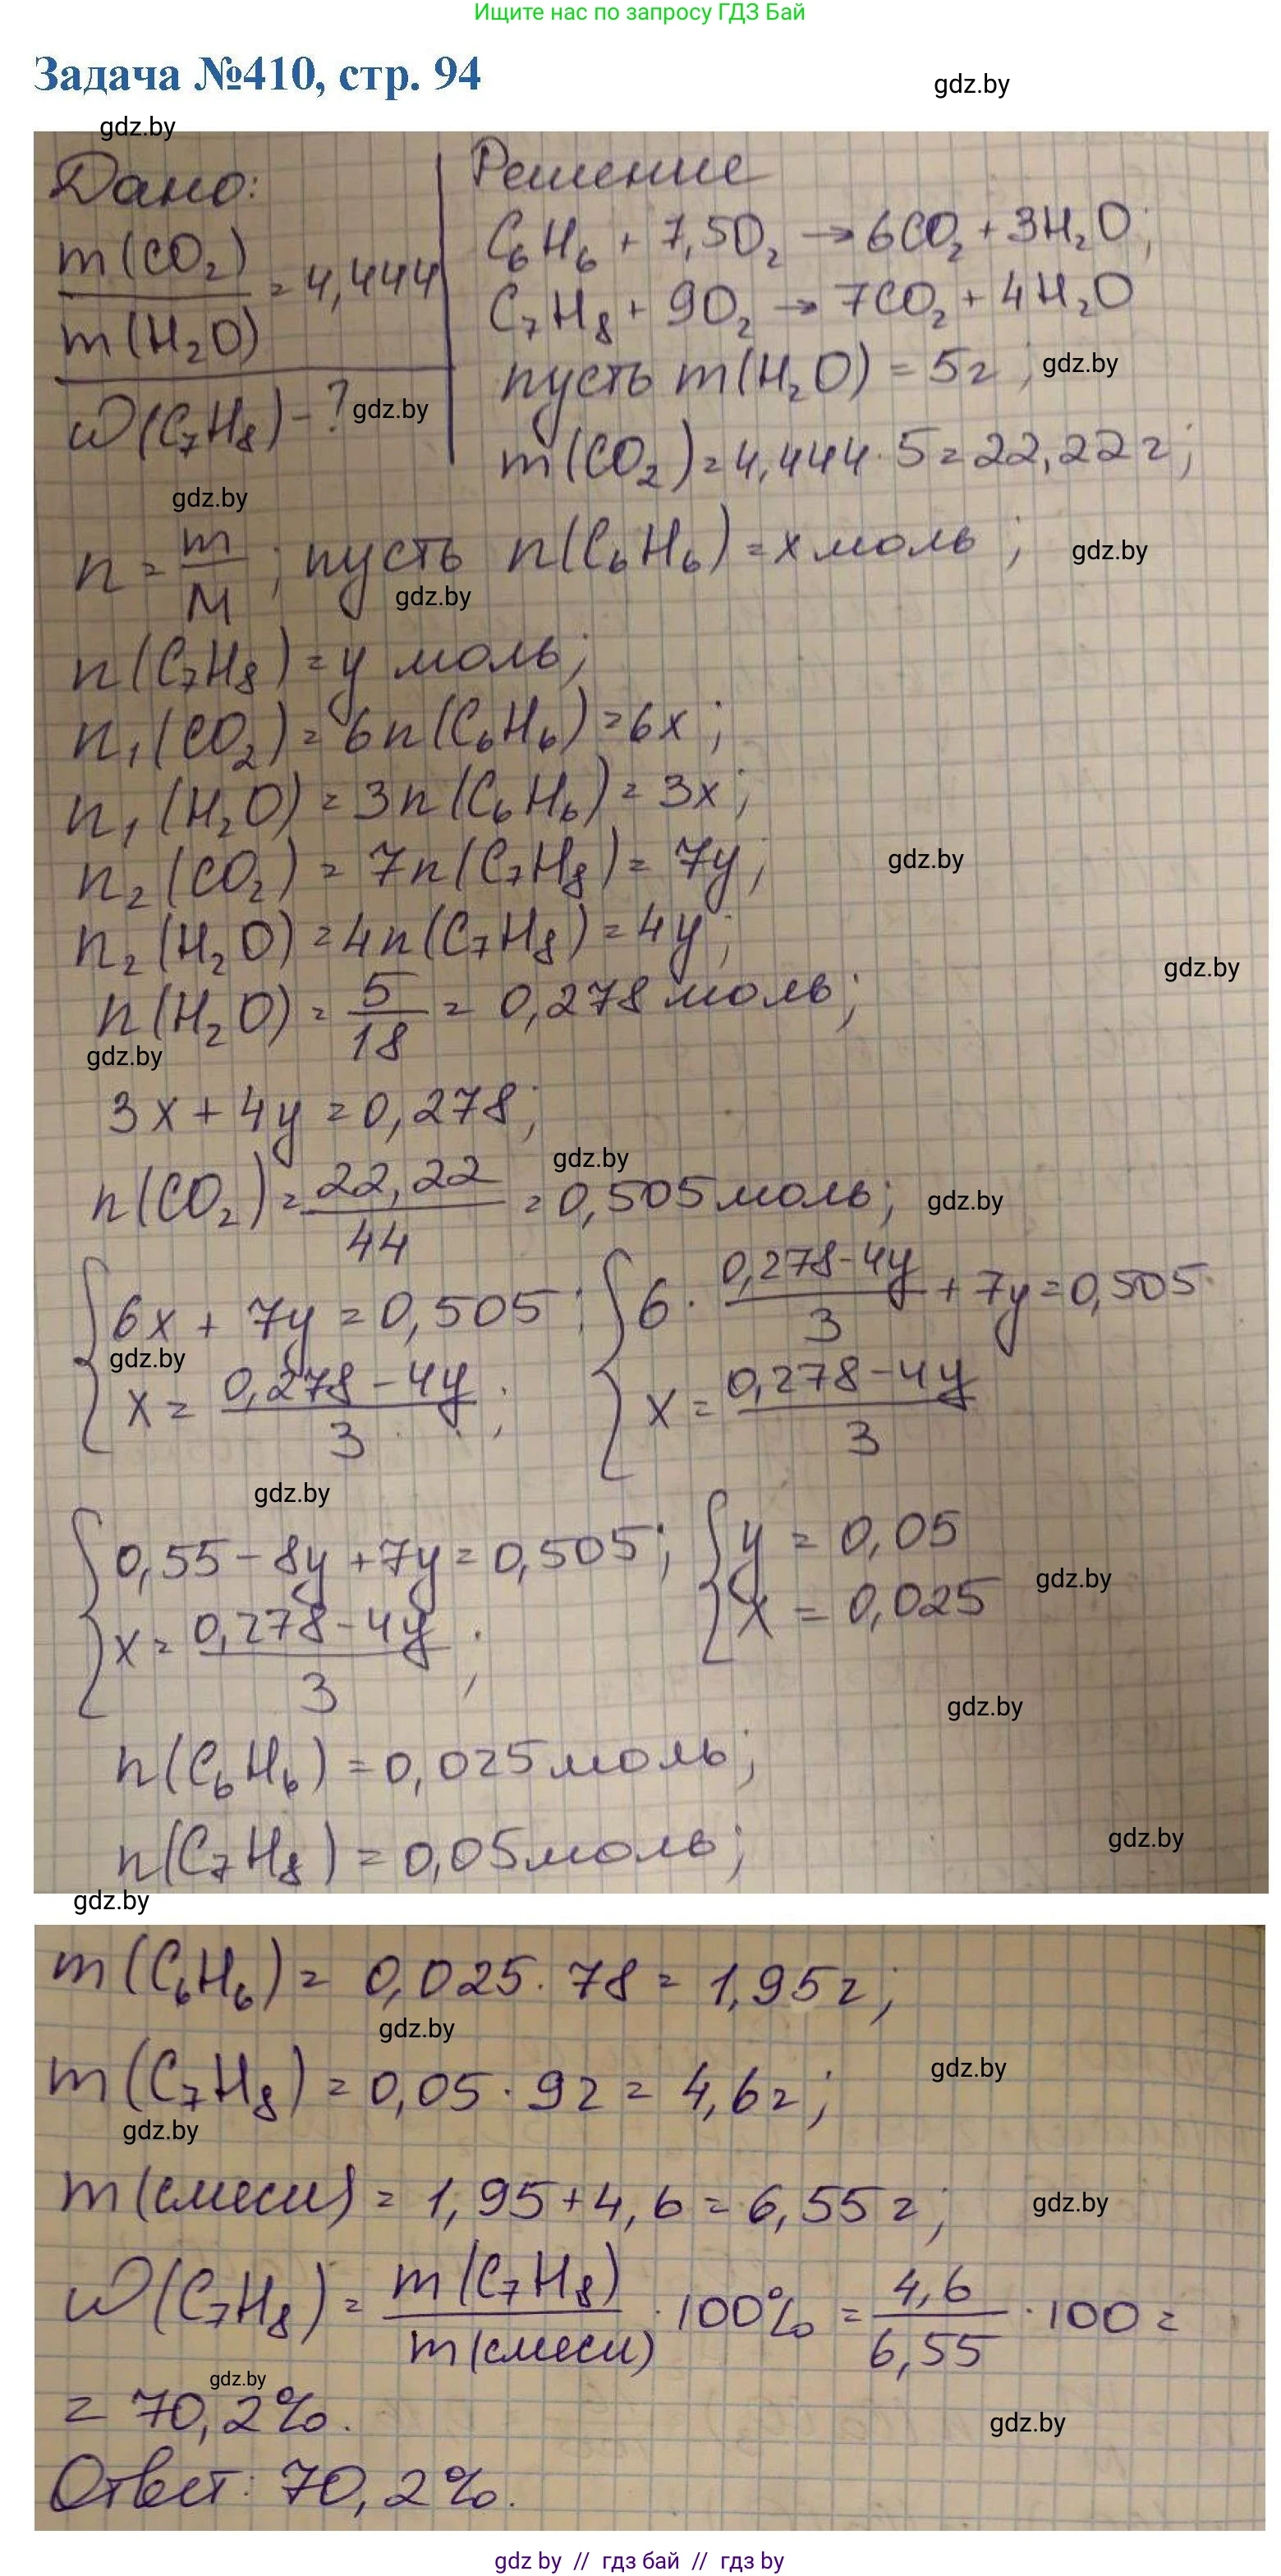 Ищите нас по запросу ГДЗ Бай
Задача №410, стр. 94
gdz.by
gdz.by
Дано:
m(CO₂)/m(H₂O) = 4,444
ω(C₇H₈) - ?
gdz.by
Решение
C₆H₆ + 7,5O₂ → 6CO₂ + 3H₂O;
C₇H₈ + 9O₂ → 7CO₂ + 4H₂O
пусть m(H₂O) = 5г;
gdz.by
m(CO₂) = 4,444 · 5 = 22,22г;
gdz.by
n = m/M; пусть n(C₆H₆) = x моль;
gdz.by
gdz.by
n(C₇H₈) = y моль;
n₁(CO₂) = 6n(C₆H₆) = 6x;
n₁(H₂O) = 3n(C₆H₆) = 3x;
n₂(CO₂) = 7n(C₇H₈) = 7y;
gdz.by
n₂(H₂O) = 4n(C₇H₈) = 4y;
gdz.by
n(H₂O) = 5/18 = 0,278 моль;
gdz.by
3x + 4y = 0,278;
gdz.by
n(CO₂) = 22,22/44 = 0,505 моль;
gdz.by
{ 6x + 7y = 0,505; { 6 · (0,278-4y)/3 + 7y = 0,505
gdz.by
x = (0,278-4y)/3; x = (0,278-4y)/3
gdz.by
{ 0,55 - 8y + 7y = 0,505; { y = 0,05
gdz.by
x = (0,278-4y)/3; x = 0,025
gdz.by
n(C₆H₆) = 0,025 моль;
n(C₇H₈) = 0,05 моль;
gdz.by
gdz.by
m(C₆H₆) = 0,025 · 78 = 1,95г;
gdz.by
m(C₇H₈) = 0,05 · 92 = 4,6г;
gdz.by
gdz.by
m(смеси) = 1,95 + 4,6 = 6,55г;
gdz.by
ω(C₇H₈) = m(C₇H₈)/m(смеси) · 100% = 4,6/6,55 · 100 =
gdz.by
= 70,2%.
gdz.by
Ответ: 70,2%.
gdz by // гдз бай // гдз by